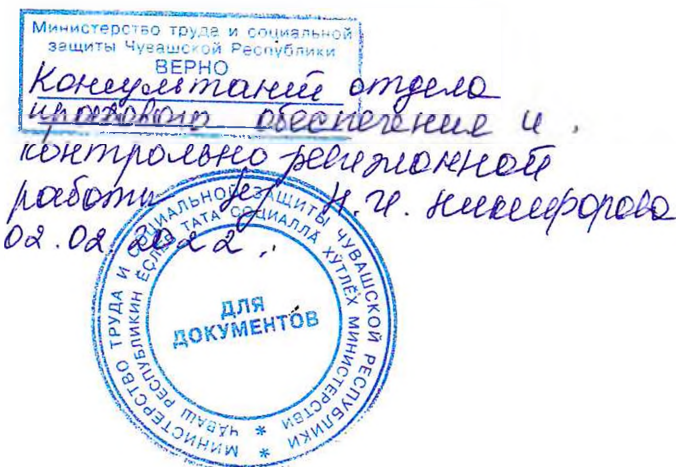 Министерство труда и социальной
защиты Чувашской Республики
ВЕРНО
Консультант отдела
правового обеспечения и
контрольно ревизионной
работы Н.И. Никифорова
02.02.2022.
МИНИСТЕРСТВО ТРУДА И СОЦИАЛЬНОЙ ЗАЩИТЫ ЧУВАШСКОЙ РЕСПУБЛИКИ *
ЧӐВАШ РЕСПУБЛИКИН ӖҪЛЕВ ТАТА СОЦИАЛЛӐ ХӲТЛӖХ МИНИСТЕРСТВИ *
ДЛЯ
ДОКУМЕНТОВ